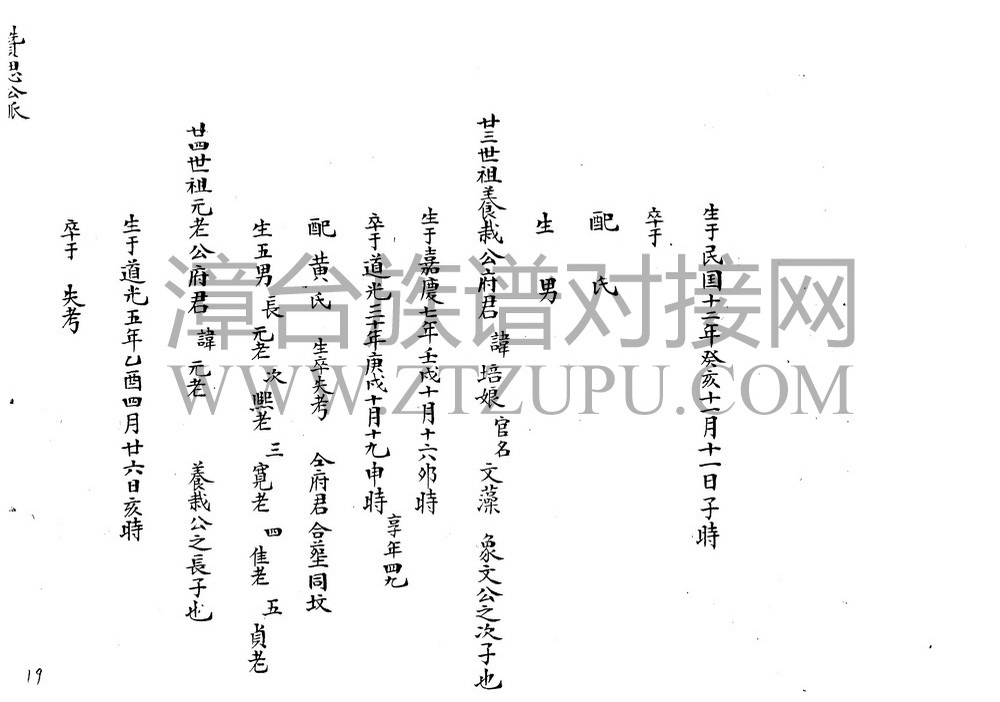 生于民国十二年癸亥十一月十一日子時
卒于
配 氏
生 男
廿三世祖養栽公府君 諱培娘 官名文藻 象文公之次子也
生于嘉慶七年壬戌十月十六卯時
卒于道光三十年庚戌十月十九申時 享年四九
配黃氏 生卒失考 仝府君合塟同坟
生五男 長元老 次熙老 三寬老 四佳老 五貞老
廿四世祖元老公府君 諱元老 養栽公之長子也
生于道光五年乙酉四月廿六日亥時
卒于 失考
思公派
19
漳台族谱对接网
WWW.ZTZUPU.COM